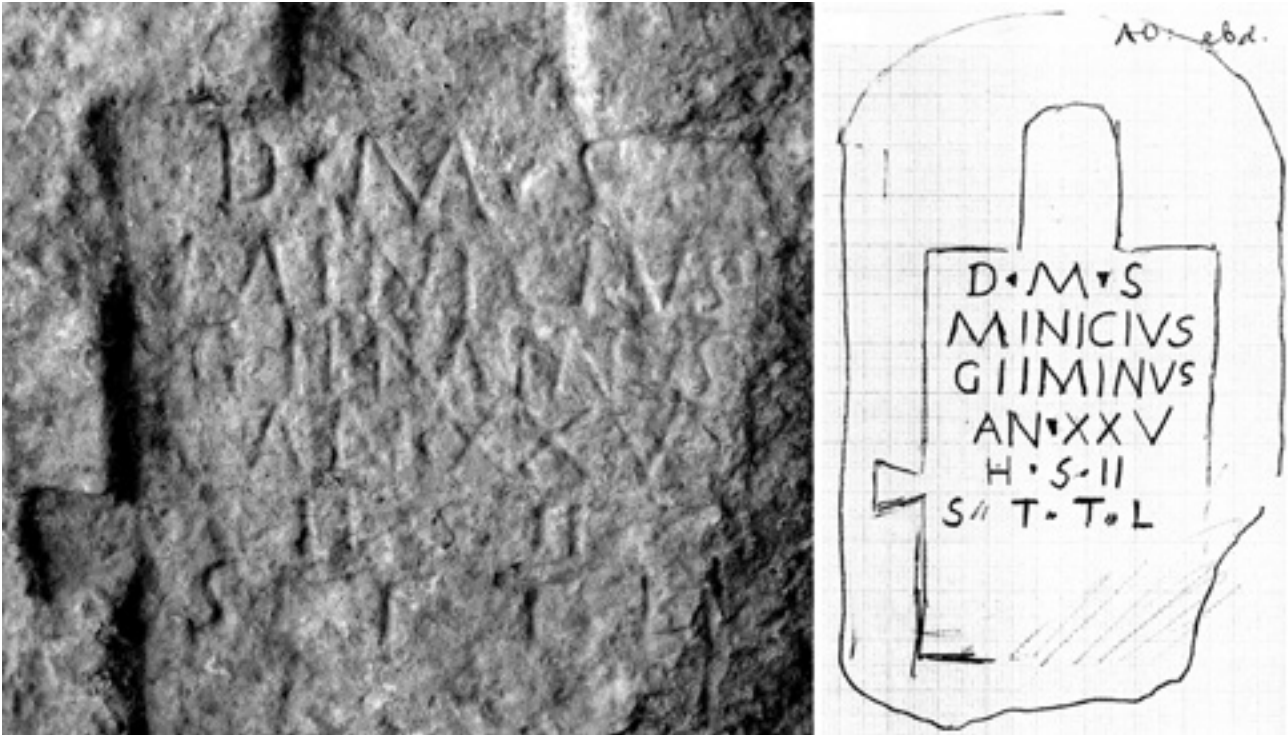 D M
MINICIVS
GIIMINVS
AN XXV
H S II
S T T L
AO. ebd.
D · M · S
MINICIVS
GIIMINVS
AN · XXV
H · S · II
S · T · T · L